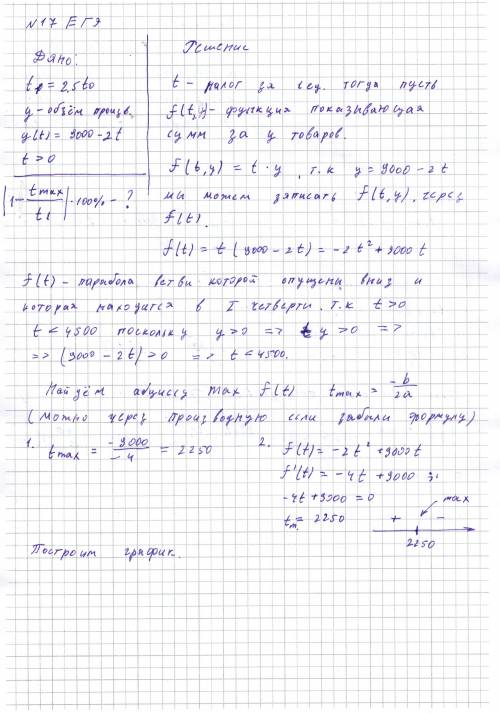 N17 ЕГЭ
Дано:
t₁ = 2,5t₀
y - объём произв.
y(t) = 9000 - 2t
t > 0
|1 - tmax/t1| · 100% - ?
Решение
t - налог за ед. тогда пусть
f(t,y) - функция показывающая
сумм за y товаров.
f(t,y) = t · y , т.к y = 9000 - 2t
мы можем записать f(t,y), через
f(t).
f(t) = t (9000 - 2t) = -2t² + 9000t
f(t) - парабола ветви которой опущены вниз и
которая находится в I четверти. т.к t>0
t < 4500 поскольку y>0 => ty >0 =>
=> (9000 - 2t) > 0 => t < 4500.
Найдём абциссу max f(t) tmax = -b/2a
(можно через производную если забыли формулу)
1. tmax = -9000/-4 = 2250
2. f(t) = -2t² + 9000t
f'(t) = -4t + 9000 ;
-4t + 9000 = 0
tm = 2250
+ - max
2250
Построим график.